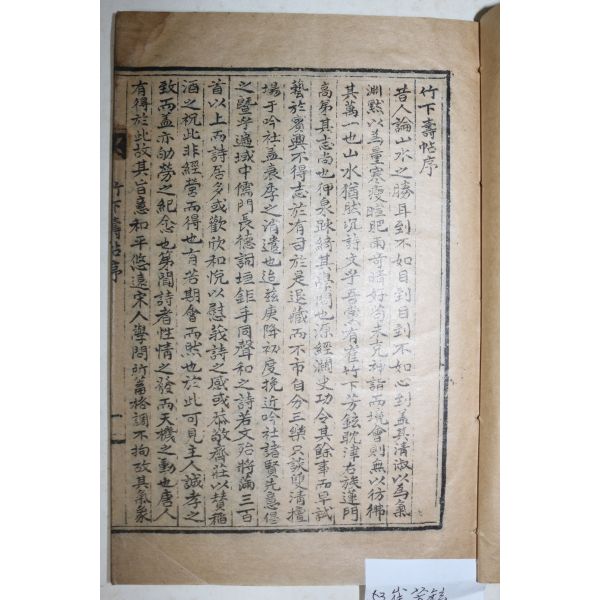 竹下壽帖序
昔人論山水之勝耳到不如目到目到不如心到盖其清淑以爲氣
淵默以爲量寒瘦暄肥雨奇晴好尚未充神詣而境會則無以彷彿
其萬一也山水猶然況詩文學吾黨有崔竹下芳鉉耽津右族蓮門
高弟其志尚也狎泉跌綺其學問也源經瀾史功令其餘事而早試
藝於賓興不得志於有司於是退藏而不市自分三樂只談雙清擅
場于吟社盖衰季之消遣也迨玆庚降初度挽近吟社諸賢先意倡
之曁乎遍域中儒門長德詞垣鉅手同聲和之詩若文殆將滿三百
首以上而詩居多或歡欣和悅以慰莪詩之感或恭敬齊莊以賛稱
酒之祝此非經營而得也有若期會而然也於此可見主人誠孝之
致而盖亦劬勞之紀念也第閒詩者性情之發而天機之動也唐人
有得於此故其旨意和平悠遠宋人學問所蓄格調不拘故其氣象
竹下壽帖序
一